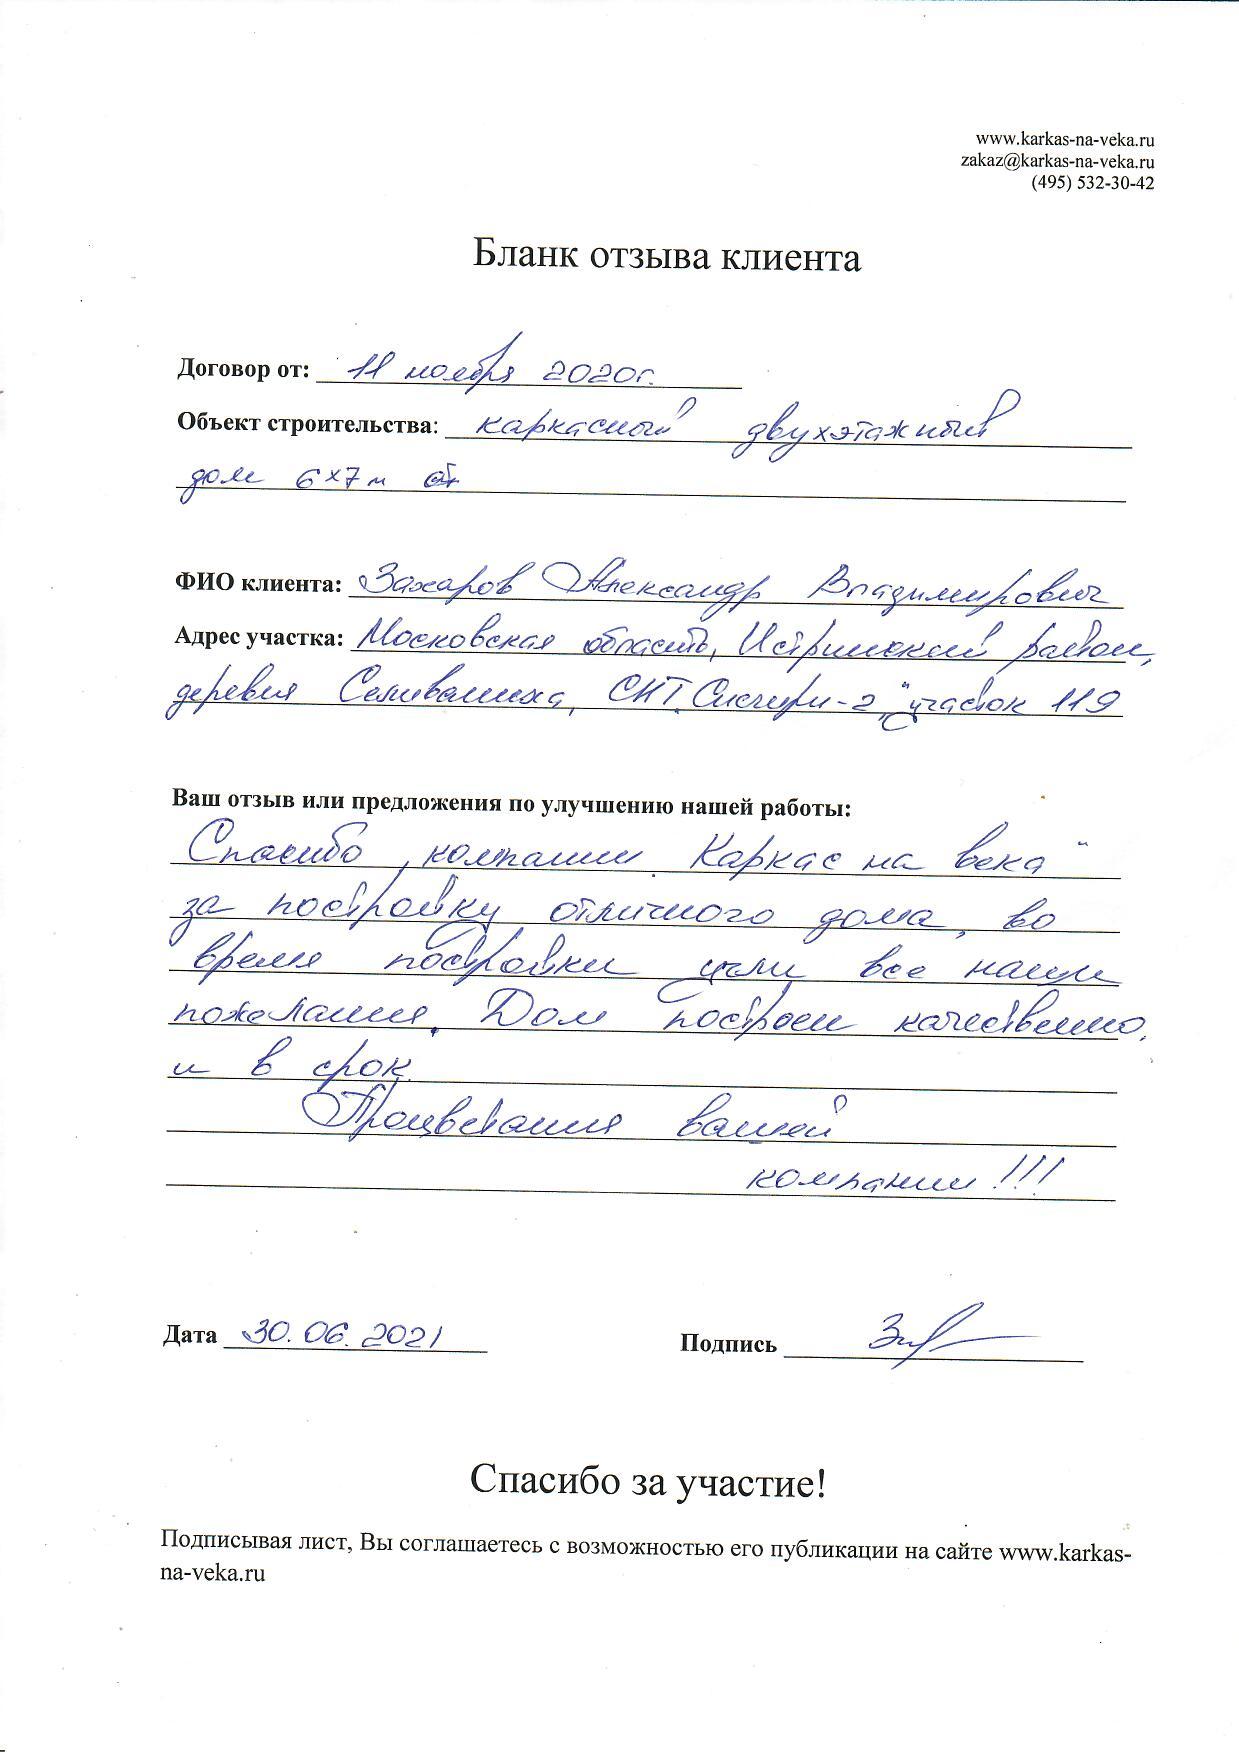 www.karkas-na-veka.ru
zakaz@karkas-na-veka.ru
(495) 532-30-42
Бланк отзыва клиента
Договор от: 11 ноября 2020г.
Объект строительства: каркасный двухэтажный
дом 6х7м
ФИО клиента: Захаров Александр Владимирович
Адрес участка: Московская область, Истринский район,
деревня Селиваниха, СНТ участок 119
Ваш отзыв или предложения по улучшению нашей работы:
Спасибо компании „Каркас на века“
за постройку отличного дома, во
время постройки учли все наши
пожелания. Дом построен качественно,
и в срок.
Процветания вашей
компании!!!
Дата 30.06.2021 Подпись
Спасибо за участие!
Подписывая лист, Вы соглашаетесь с возможностью его публикации на сайте www.karkas-
na-veka.ru